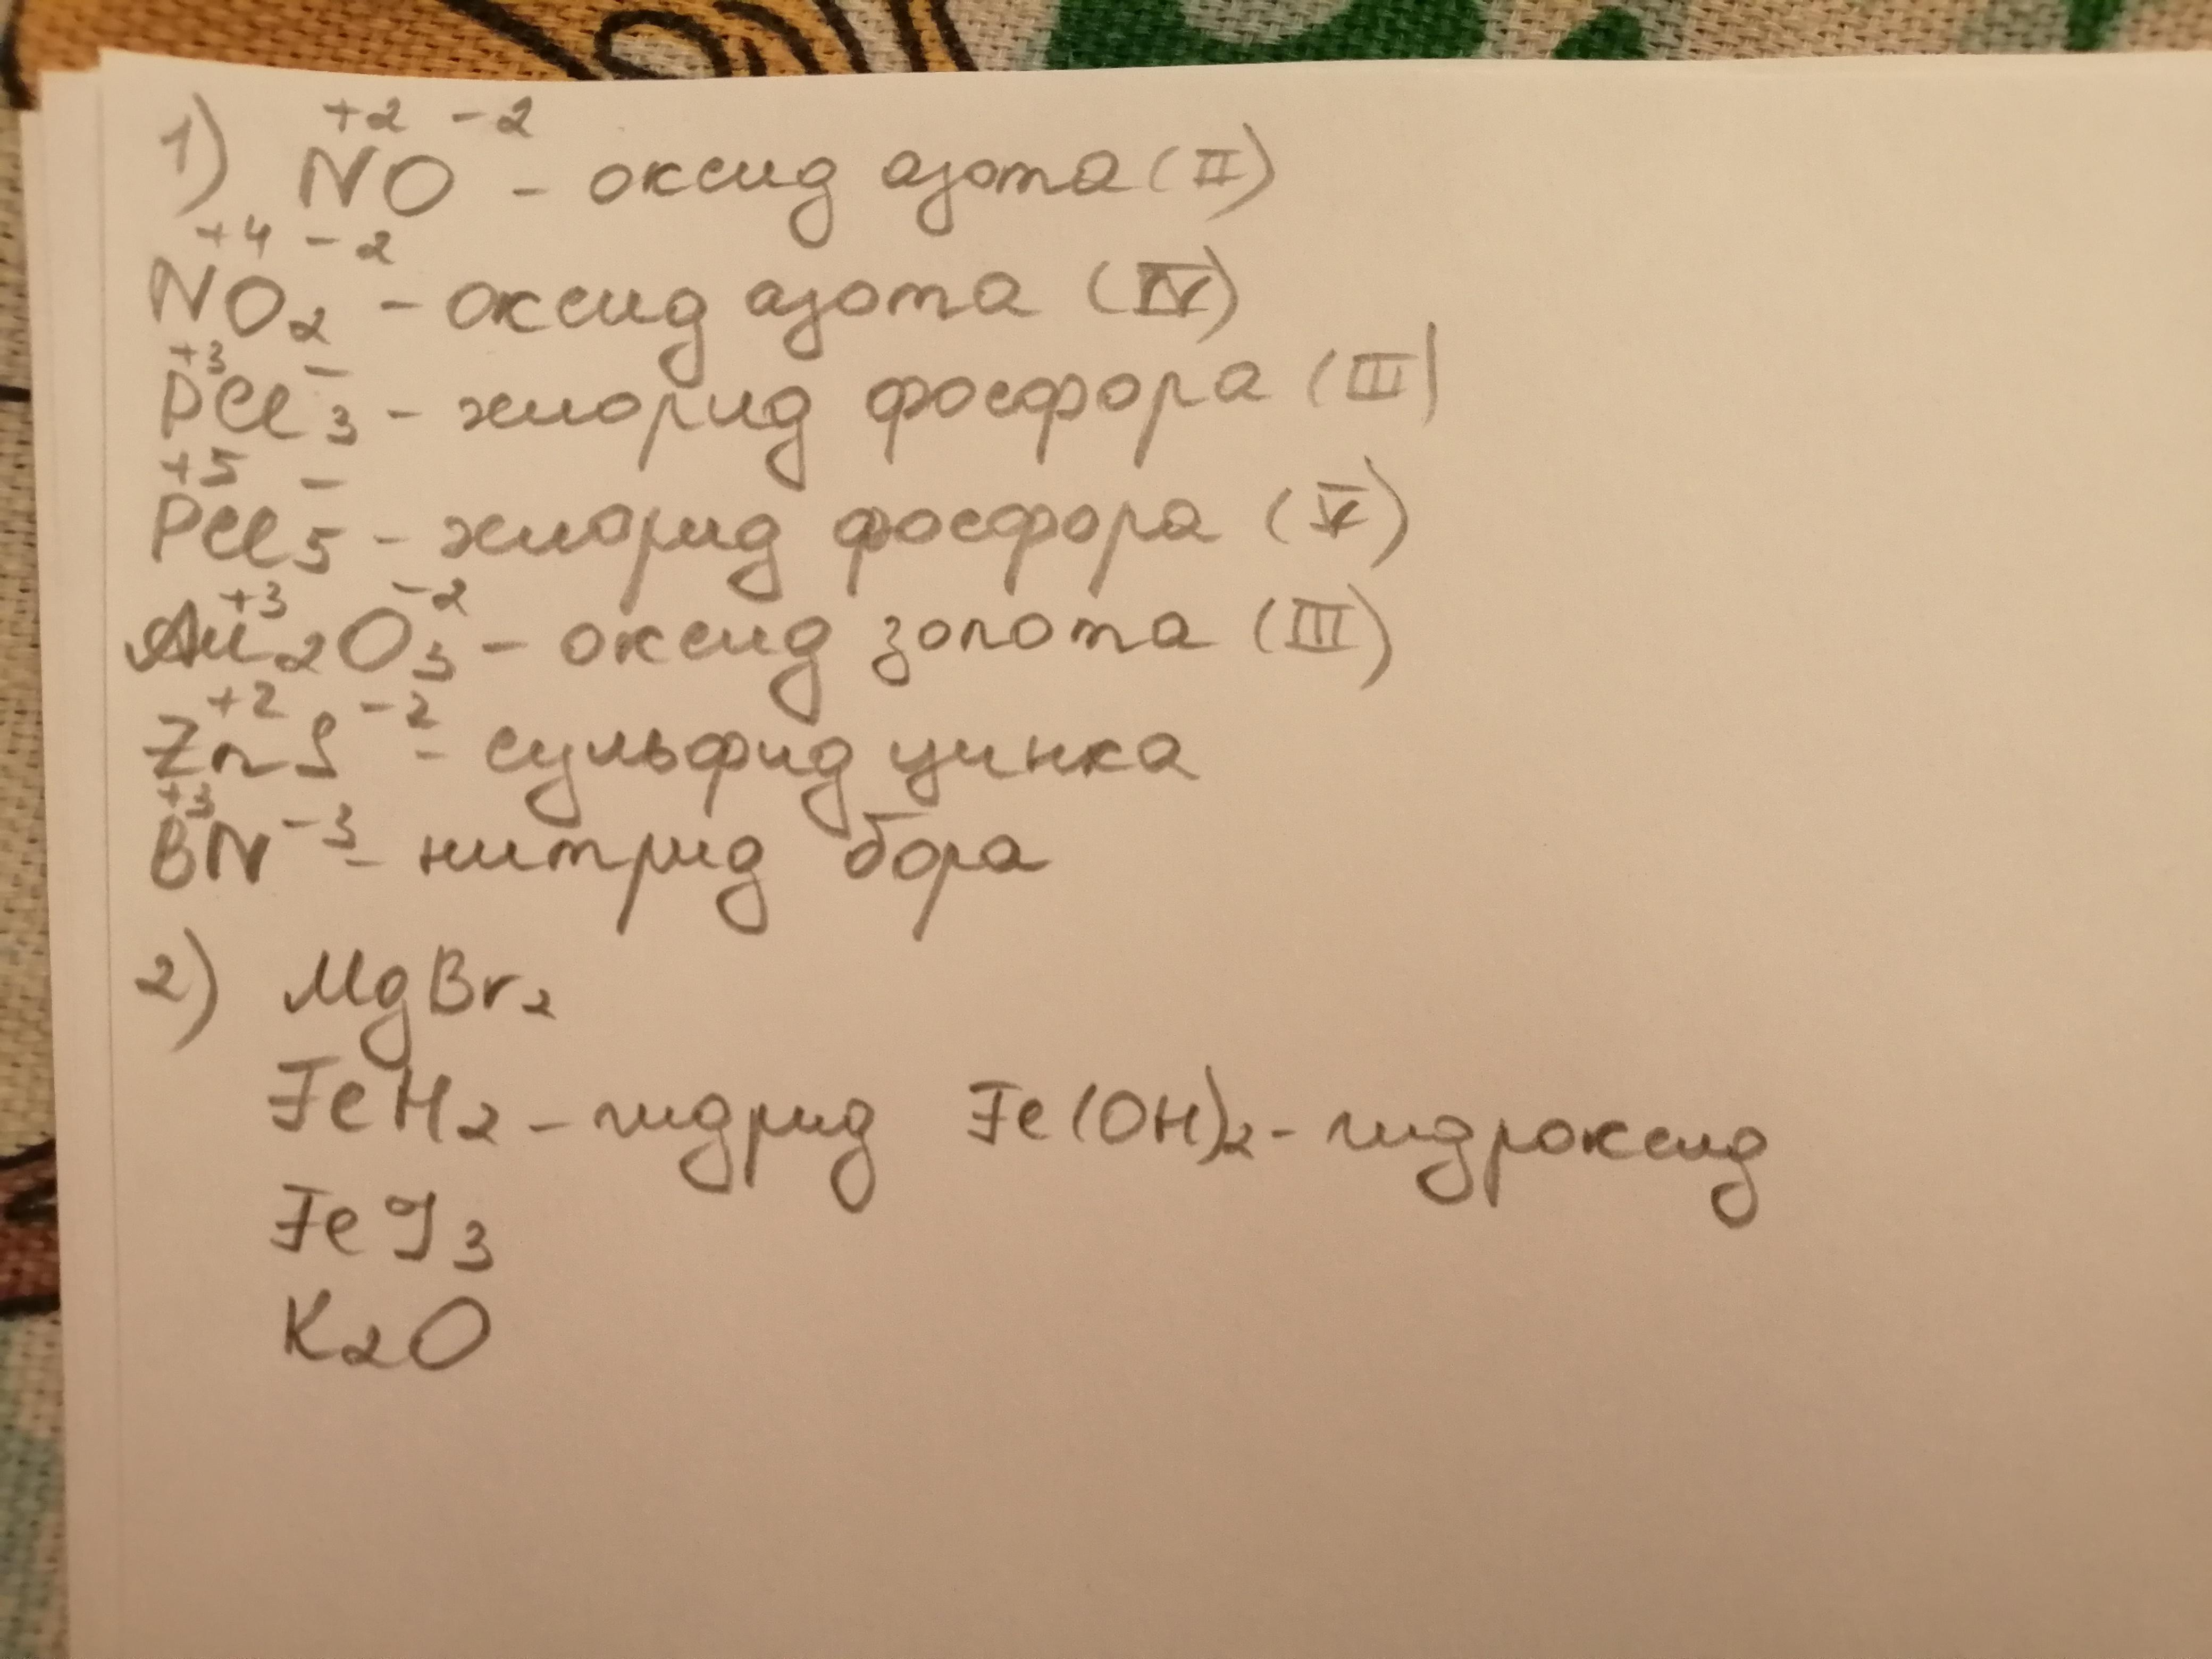 +2 -2
1) NO - оксид азота (II)
+4 -2
NO2 - оксид азота (IV)
+3 -
PCl3 - хлорид фосфора (III)
+5 -
PCl5 - хлорид фосфора (V)
+3 -2
Au2O3 - оксид золота (III)
+2 -2
ZnS - сульфид цинка
+3 -3
BN - нитрид бора
2) MgBr2
FeH2 - гидрид Fe(OH)2 - гидроксид
FeJ3
K2O